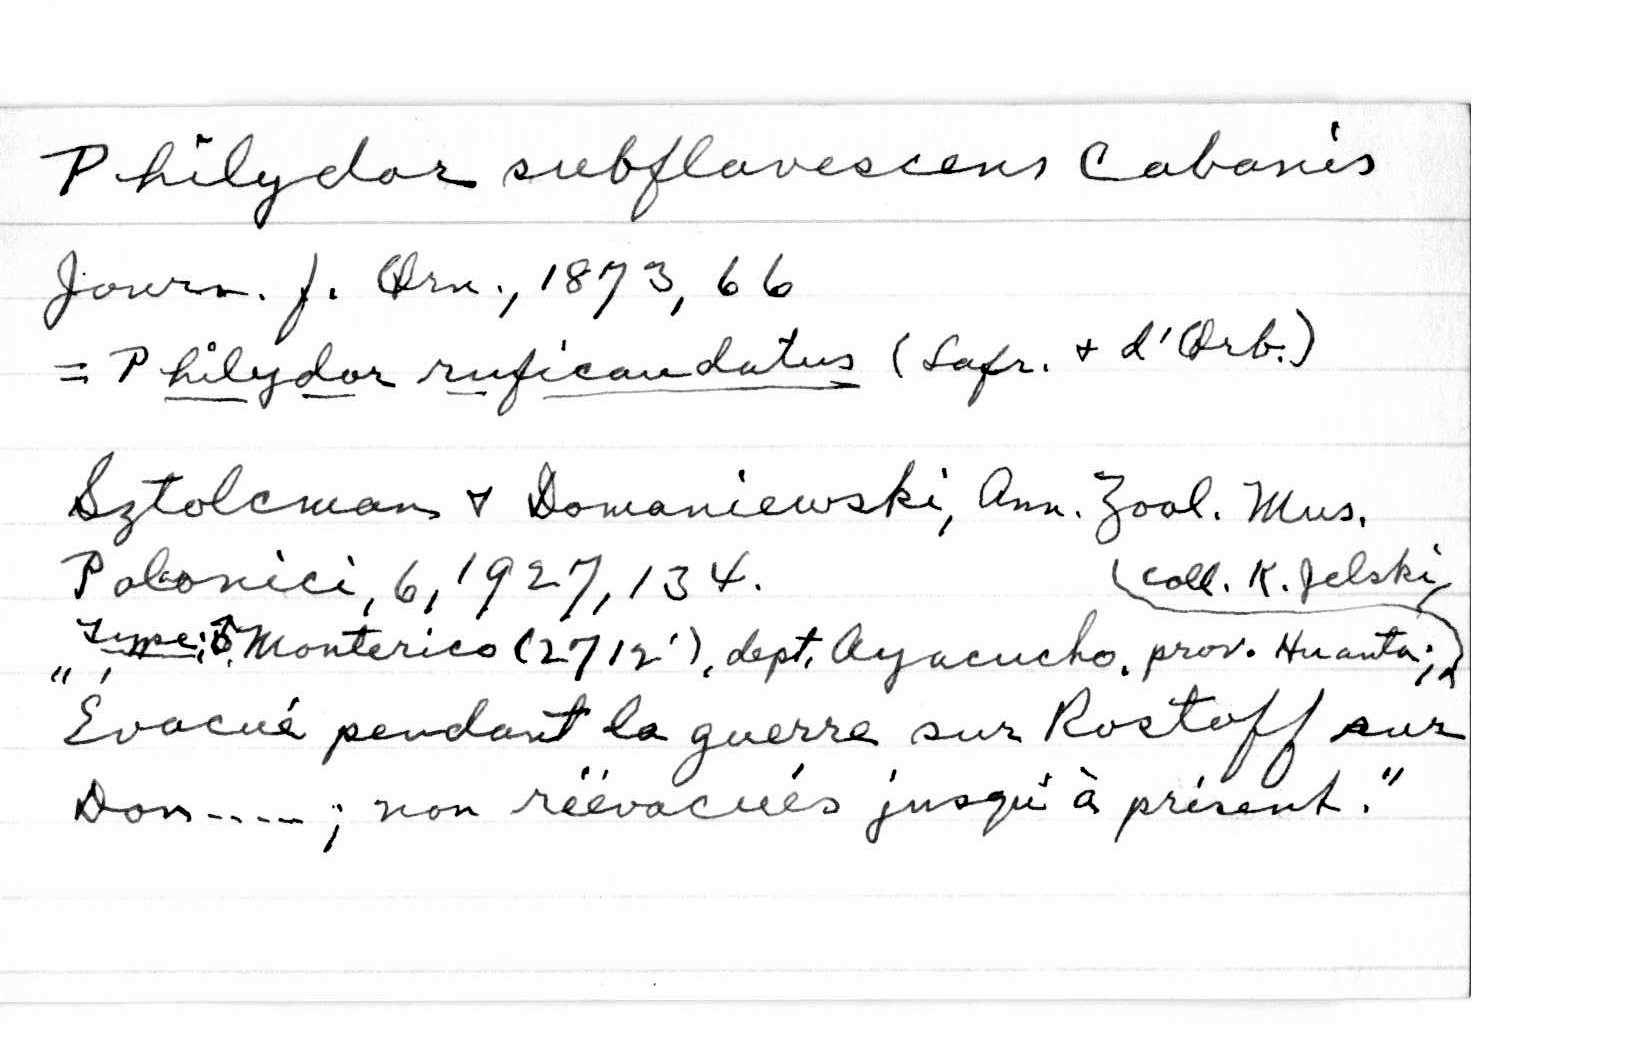 Philydor subflavescens Cabanis
Journ. f. Orn., 1873, 66
= Philydor ruficaudatus (Lafr. + d'Orb.)
Sztolcman & Domaniewski, Ann. Zool. Mus.
Polonici, 6, 1927, 134.
(coll. K. Jelski,
" Type; ♂. Monterico (2712'), dept. Ayacucho, prov. Huanta;
Evacué pendant la guerre sur Rostoff sur
Don ....; non réévacués jusqu'à présent."